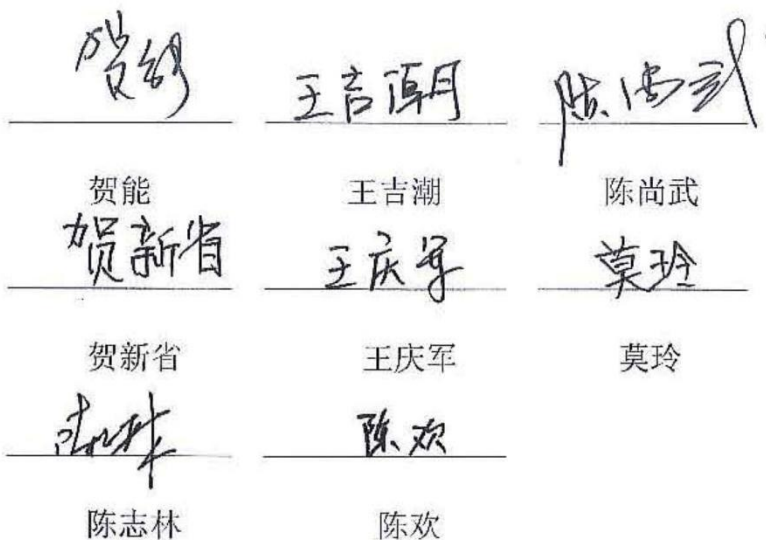 贺能 王吉潮 陈尚武
贺能 王吉潮 陈尚武
贺新省 王庆军 莫玲
贺新省 王庆军 莫玲
陈志林 陈欢
陈志林 陈欢